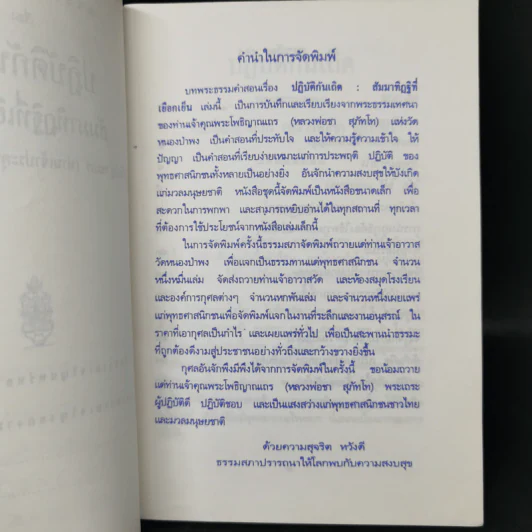 คำนำในการจัดพิมพ์
บทพระธรรมคำสอนเรื่อง ปฏิบัติกันเถิด : สัมมาทิฏฐิที่
เยือกเย็น เล่มนี้ เป็นการบันทึกและเรียบเรียงจากพระธรรมเทศนา
ของท่านเจ้าคุณพระโพธิญาณเถร (หลวงพ่อชา สุภัทโท) แห่งวัด
หนองป่าพง เป็นคำสอนที่ประทับใจ และให้ความรู้ความเข้าใจ ให้
ปัญญา เป็นคำสอนที่เรียบง่ายเหมาะแก่การประพฤติ ปฏิบัติ ของ
พุทธศาสนิกชนทั้งหลายเป็นอย่างยิ่ง อันจักนำความสงบสุขให้บังเกิด
แก่มวลมนุษยชาติ หนังสือชุดนี้จัดพิมพ์เป็นหนังสือขนาดเล็ก เพื่อ
สะดวกในการพกพา และสามารถหยิบอ่านได้ในทุกสถานที่ ทุกเวลา
ที่ต้องการใช้ประโยชน์จากหนังสือเล่มเล็กนี้
ในการจัดพิมพ์ครั้งนี้ธรรมสภาจัดพิมพ์ถวายแด่ท่านเจ้าอาวาส
วัดหนองป่าพง เพื่อแจกเป็นธรรมทานแด่พุทธศาสนิกชน จำนวน
หนึ่งหมื่นเล่ม จัดส่งถวายท่านเจ้าอาวาสวัด และห้องสมุดโรงเรียน
และองค์การกุศลต่างๆ จำนวนหกพันเล่ม และจำนวนหนึ่งเผยแพร่
แก่พุทธศาสนิกชนเพื่อจัดพิมพ์แจกในงานที่ระลึกและงานอนุสรณ์ ใน
ราคาที่เอากุศลเป็นกำไร และเผยแพร่ทั่วไป เพื่อเป็นสะพานนำธรรมะ
ที่ถูกต้องดีงามสู่ประชาชนอย่างทั่วถึงและกว้างขวางยิ่งขึ้น
กุศลอันจักพึงมีพึงได้จากการจัดพิมพ์ในครั้งนี้ ขอน้อมถวาย
แด่ท่านเจ้าคุณพระโพธิญาณเถร (หลวงพ่อชา สุภัทโท) พระเถระ
ผู้ปฏิบัติดี ปฏิบัติชอบ และเป็นแสงสว่างแก่พุทธศาสนิกชนชาวไทย
และมวลมนุษยชาติ
ด้วยความสุจริต หวังดี
ธรรมสภาปรารถนาให้โลกพบกับความสงบสุข